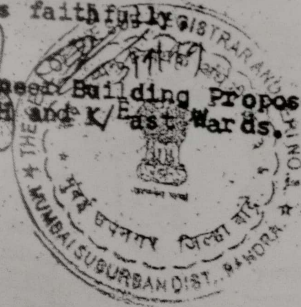 s faithfully,
neer Building Propos
H and K/East Wards.
THE
REGISTRAR AND
NO.
मुंबई उपनगर जिल्हा
MUMBAI SUBURBAN DIST., BANDRA